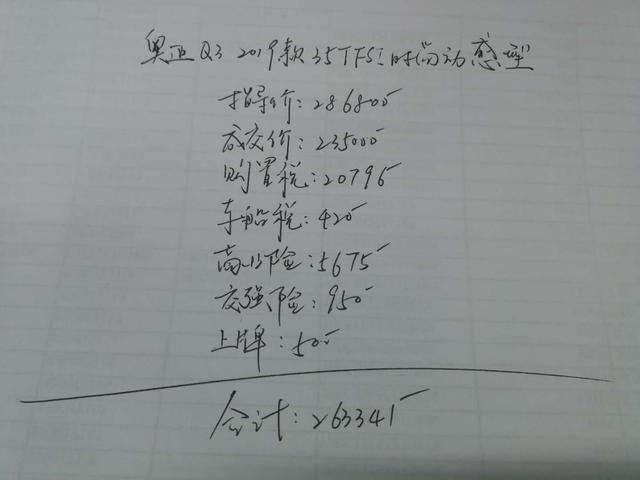 奥迪Q3 2019款35TFSI时尚动感型
指导价:286800
成交价:235000
购置税:20796
车船税:420
商业险:5675
交强险:950
上牌:500
合计:263341